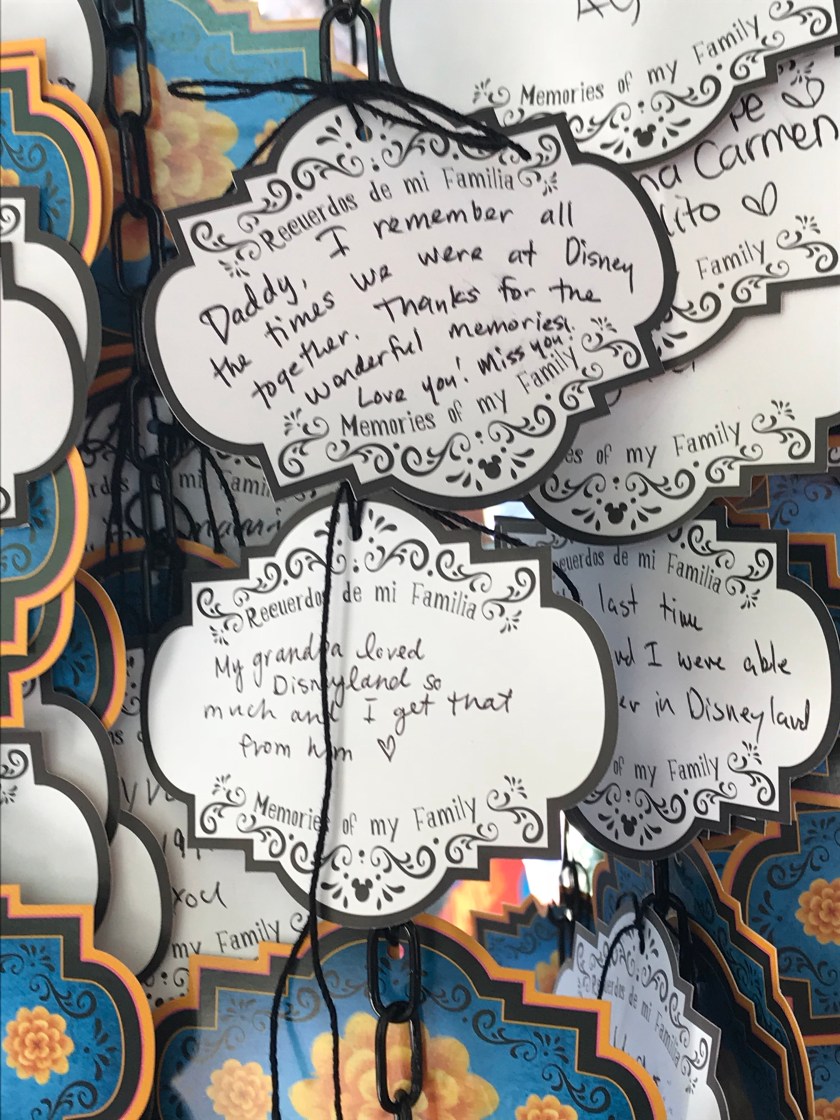 Memories of my Family
Carmen
Family
Recuerdos de mi Familia
Daddy, I remember all
the times we were at Disney
together. Thanks for the
wonderful memories!
Love you! Miss you!
Memories of my Family
of my Family
mi
Recuerdos de mi Familia
My grandpa loved
Disneyland so
much and I get that
from him ♡
Memories of my Family
de mi Familia
last time
I were able
in Disneyland
of my Family
you
my Family
de mi